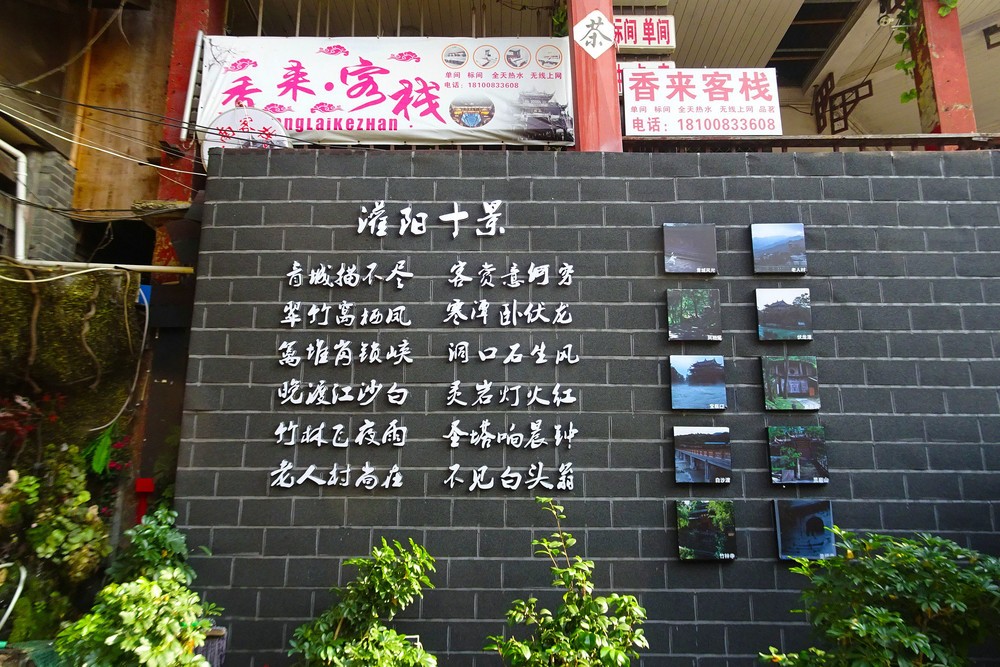 香来·客栈
ngLaiKeZHan
单间 标间 全天热水 无线上网
电话：18100833608
茶
标间 单间
香来客栈
单间 标间 全天热水 无线上网 品茗
电话：18100833608
灌阳十景
青城描不尽 客赏意何穷
翠竹窝栖凤 寒潭卧伏龙
笼堆岗锁峡 洞口石生风
晚渡江沙白 灵岩灯火红
竹林飞夜雨 圣塔响晨钟
老人村尚在 不见白头翁
老人村
伏龙潭
白沙渡
灵岩山
竹林寺